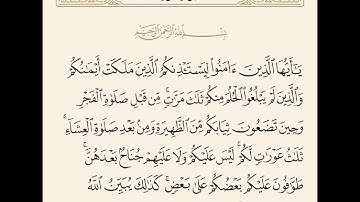 بِسْمِ اللَّهِ الرَّحْمَٰنِ الرَّحِيمِ
يَٰٓأَيُّهَا الَّذِينَ ءَامَنُوا لِيَسْتَـْٔذِنكُمُ الَّذِينَ مَلَكَتْ أَيْمَٰنُكُمْ
وَالَّذِينَ لَمْ يَبْلُغُوا الْحُلُمَ مِنكُمْ ثَلَٰثَ مَرَّٰتٍ ۚ مِّن قَبْلِ صَلَوٰةِ الْفَجْرِ
وَحِينَ تَضَعُونَ ثِيَابَكُم مِّنَ الظَّهِيرَةِ وَمِنۢ بَعْدِ صَلَوٰةِ الْعِشَآءِ ۚ
ثَلَٰثُ عَوْرَٰتٍ لَّكُمْ ۚ لَيْسَ عَلَيْكُمْ وَلَا عَلَيْهِمْ جُنَاحٌۢ بَعْدَهُنَّ ۚ
طَوَّٰفُونَ عَلَيْكُم بَعْضُكُمْ عَلَىٰ بَعْضٍ ۚ كَذَٰلِكَ يُبَيِّنُ اللَّهُ